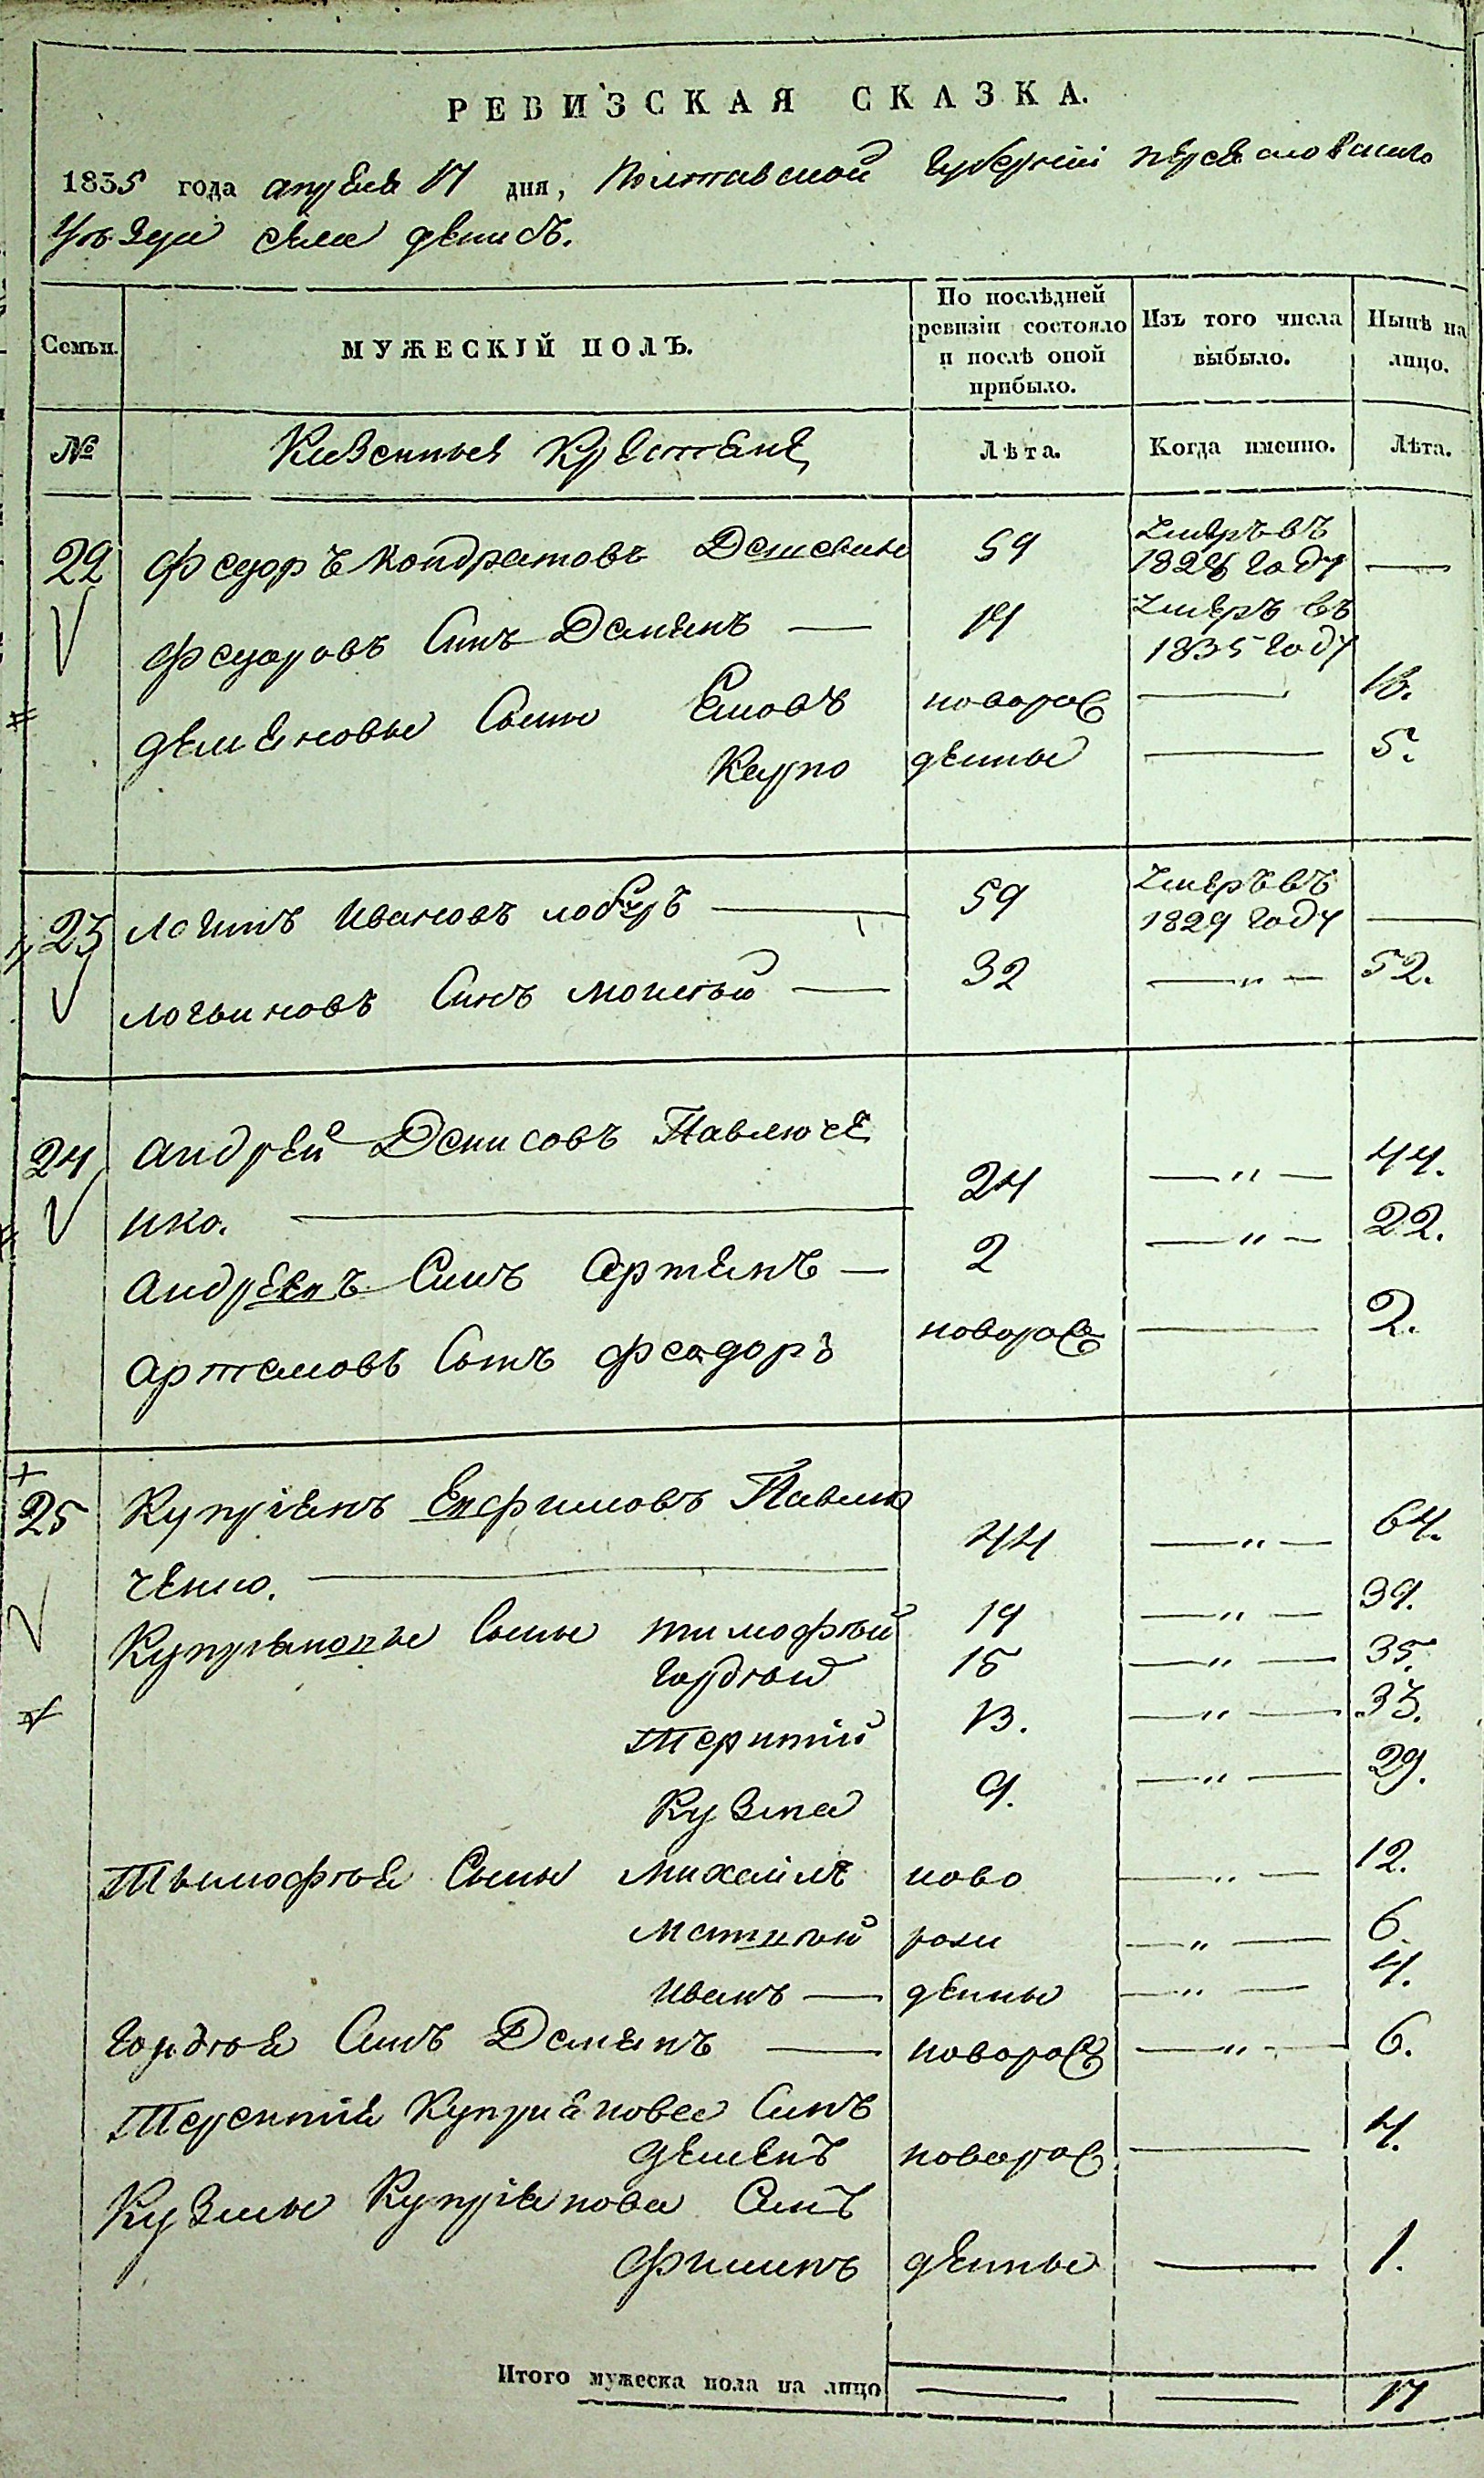 РЕВИЗСКАЯ СКАЗКА.
1835 года апреля 17 дня, Полтавской Губернии переяславского
Уѣзда села денисъ.
Семьи. МУЖЕСКІЙ ПОЛЪ. По послѣдней ревизіи состояло и послѣ оной прибыло. Изъ того числа выбыло. Нынѣ на лицо.
№ Казенные Крестяне Лѣта. Когда именно. Лѣта.
22 Феодоръ Кондратовъ 59 Умеръ въ 1828 году —
Феодоровъ Синъ Демянъ — 14 Умеръ въ 1835 году
демяновы Сыны новорож — 16.
Карпо денные — 5.
23 Логинъ Ивановъ — 59 Умеръ въ 1829 году —
логвиновъ Синъ Моисей — 32 — " — 52.
24 Андрей Денисовъ Павлюче
нко. — 24 — " — 44.
Андреевъ Синъ Артемъ — 2 — " — 22.
Артемовъ Сынъ Феодоръ новорож — 2.
25 Купріянъ Евфимовъ Павлю
ченко. — 44 — " — 64.
Купріяновы Сыны тимофѣй 19 — " — 39.
Гордѣй 15 — " — 35.
Терентій 13. — " — 33.
Кузма 9. — " — 29.
Тымофѣя Сыны михаилъ ново — " — 12.
Матвѣй рож — " — 6
Иванъ — денные — " — 4.
Гордѣя Синъ Демянъ — новорож — " — 6.
Терентия Куприянова Синъ
демянъ новорож — 4.
Кузмы Купріянова Синъ
Филипъ денные — 1.
Итого мужеска пола на лицо — — 17